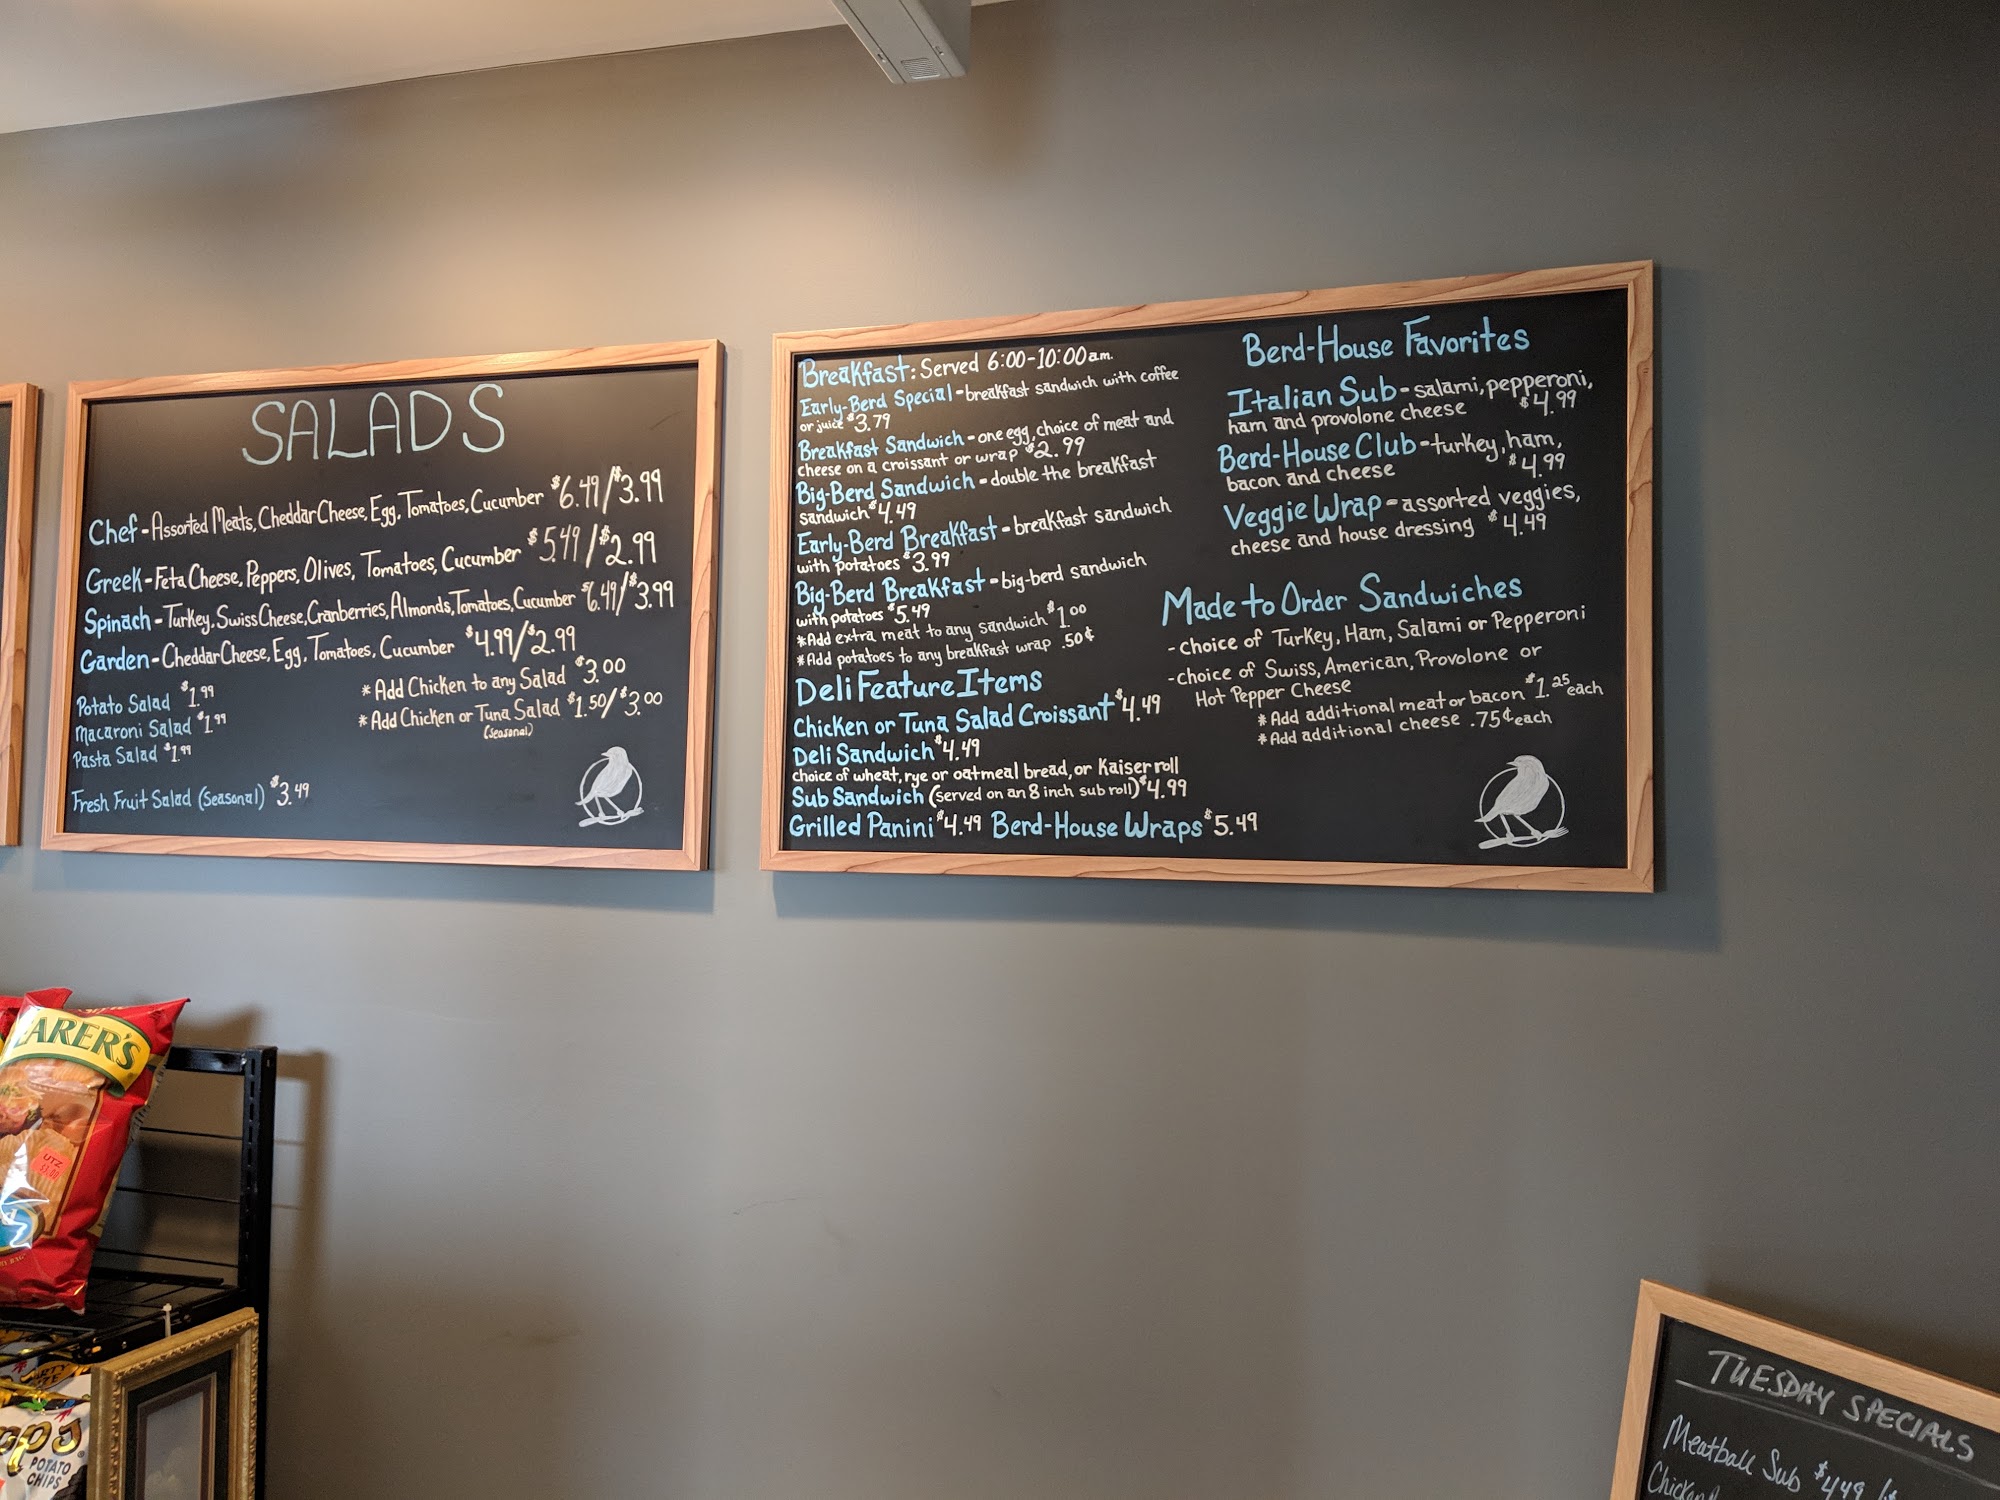 SALADS
Chef - Assorted Meats, Cheddar Cheese, Egg, Tomatoes, Cucumber $6.49/$3.99
Greek - Feta Cheese, Peppers, Olives, Tomatoes, Cucumber $5.49/$2.99
Spinach - Turkey, Swiss Cheese, Cranberries, Almonds, Tomatoes, Cucumber $6.49/$3.99
Garden - Cheddar Cheese, Egg, Tomatoes, Cucumber $4.99/$2.99
Potato Salad $1.99
Macaroni Salad $1.99
Pasta Salad $1.99
Fresh Fruit Salad (Seasonal) $3.49
*Add Chicken to any Salad $3.00
*Add Chicken or Tuna Salad $1.50/$3.00
(Seasonal)
Breakfast: Served 6:00-10:00am.
Early-Berd Special - breakfast sandwich with coffee
or juice $3.79
Breakfast Sandwich - one egg, choice of meat and
cheese on a croissant or wrap $2.99
Big-Berd Sandwich - double the breakfast
sandwich $4.49
Early-Berd Breakfast - breakfast sandwich
with potatoes $3.99
Big-Berd Breakfast - big-berd sandwich
with potatoes $5.49
*Add extra meat to any sandwich $1.00
*Add potatoes to any breakfast wrap .50¢
Deli Feature Items
Chicken or Tuna Salad Croissant $4.49
Deli Sandwich $4.49
choice of wheat, rye or oatmeal bread, or Kaiser roll
Sub Sandwich (served on an 8 inch sub roll) $4.99
Grilled Panini $4.49 Berd-House Wraps $5.49
Berd-House Favorites
Italian Sub - salami, pepperoni,
ham and provolone cheese $4.99
Berd-House Club - turkey, ham,
bacon and cheese $4.99
Veggie Wrap - assorted veggies,
cheese and house dressing $4.49
Made to Order Sandwiches
- choice of Turkey, Ham, Salami or Pepperoni
- choice of Swiss, American, Provolone or
Hot Pepper Cheese
*Add additional meat or bacon $1.25 each
*Add additional cheese .75¢ each
EARER'S
UTZ
$1.00
POTATO
CHIPS
TUESDAY SPECIALS
Meatball Sub $4.49
Chicken